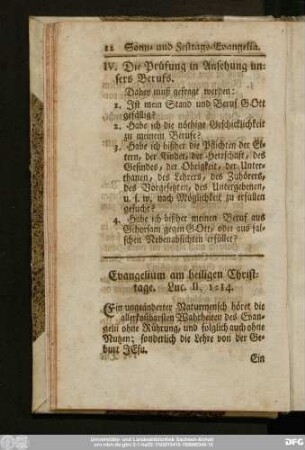 12 Sonn- und Festtags-Evangelia.
IV. Die Prüfung in Ansehung un-
sers Berufs.
Daher muß gefragt werden:
1. Ist mein Stand und Beruf GOtt
gefällig?
2. Habe ich die nöthige Geschicklichkeit
zu meinem Berufe?
3. Habe ich bißher die Pflichten der El-
tern, der Kinder, der Herrschaft, des
Gesindes, der Obrigkeit, der Unter-
thanen, des Lehrers, des Zuhörers,
des Vorgesetzten, des Untergebenen,
u. s. w. nach Möglichkeit zu erfüllen
gesucht?
4. Habe ich bißher meinen Beruf aus
Gehorsam gegen GOtt, oder aus fal-
schen Nebenabsichten erfüllet?
Evangelium am heiligen Christ-
tage. Luc. II, 1:14.
Ein ungeänderter Naturmensch höret die
allerkostbarsten Wahrheiten des Evan-
gelii ohne Rührung, und folglich auch ohne
Nutzen; sonderlich die Lehre von der Ge-
burt JEsu.
Ein
Universitäts- und Landesbibliothek Sachsen-Anhalt
DFG